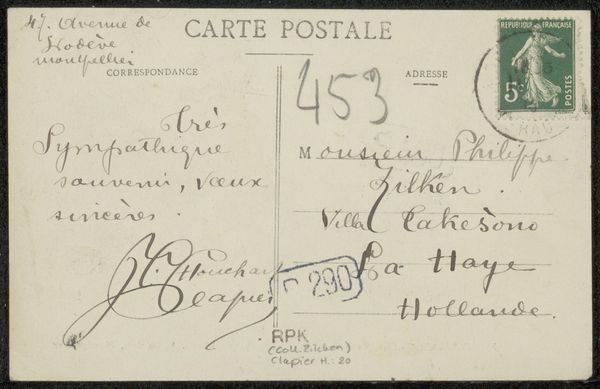 47. Avenue de
Lodève
montpellier
CARTE POSTALE
CORRESPONDANCE
ADRESSE
RÉPUBLIQUE FRANÇAISE
5c
POSTES
453
Très
Sympathique
souvenir, vœux
sincères.
Clapier
Monsieur Philippe
Zilken.
Villa Cakesono
La Haye
Hollande.
290
RPK
(Coll. Zilcken)
Clapier H.: 20